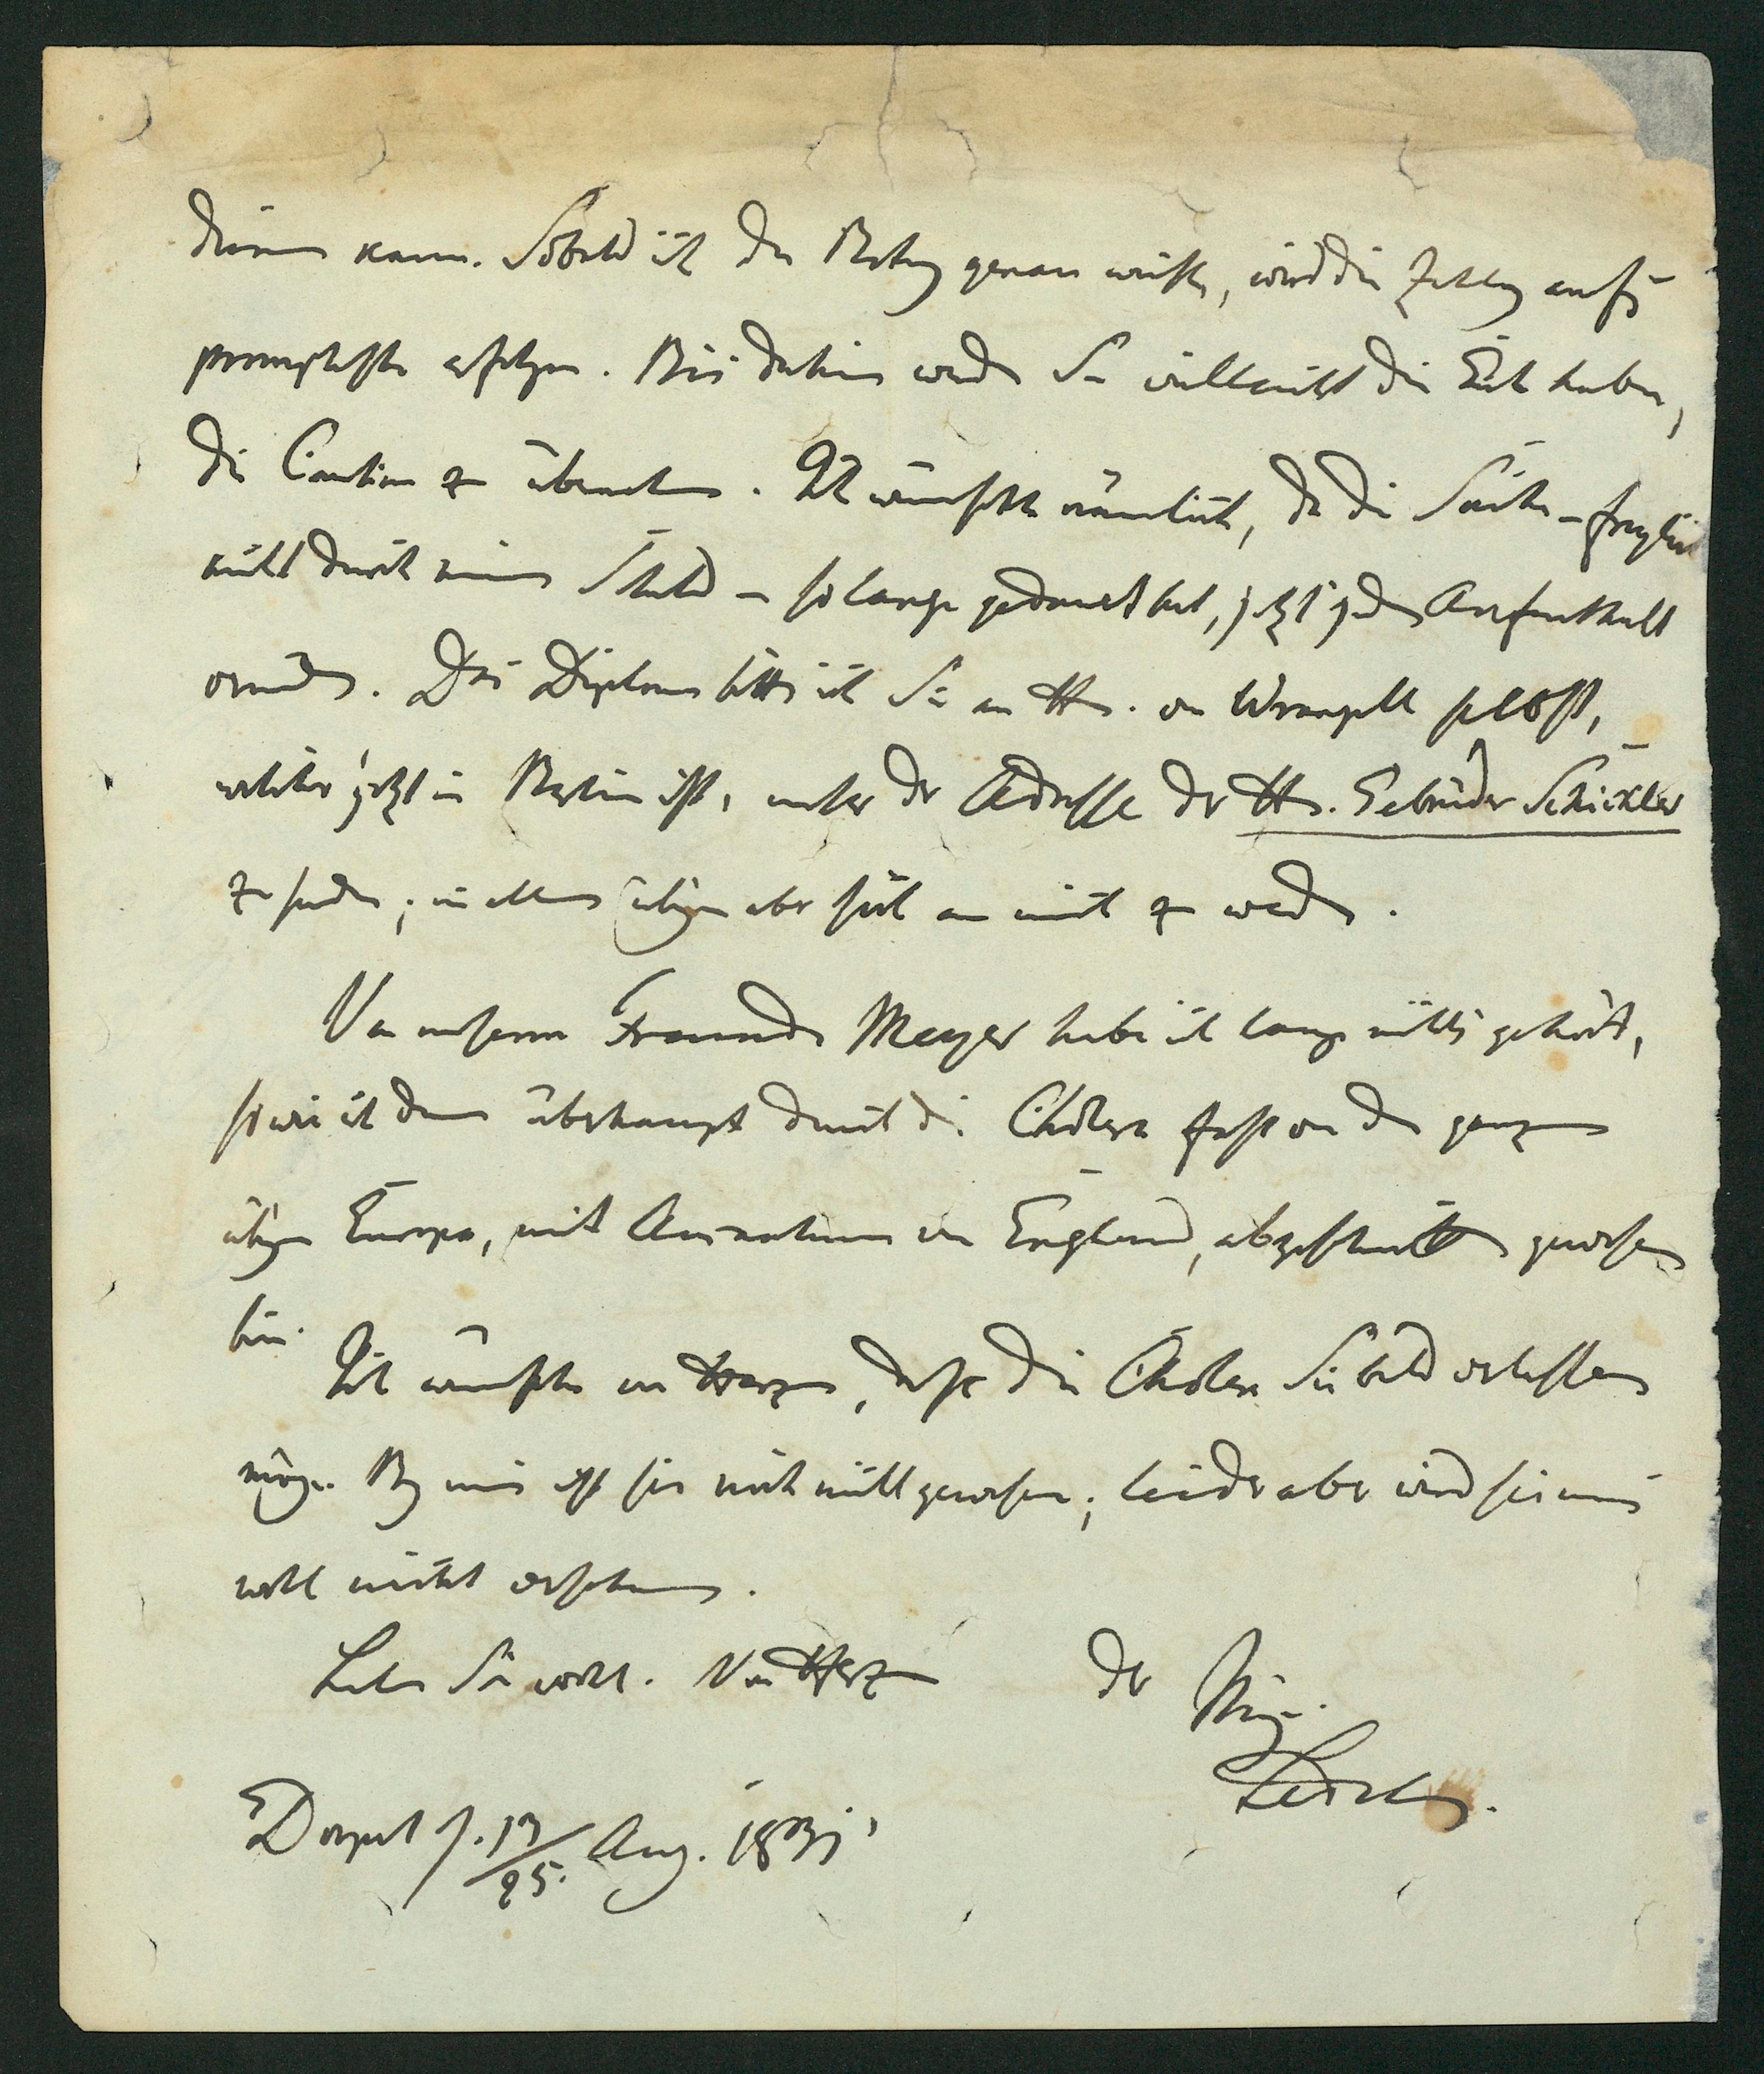 dienen kann. Sobald ich den Betrag genau weiß, wird die Zahlung aufs
prompteste erfolgen. Bis dahin werden Sie vielleicht die Güte haben,
die Caution zu übernehmen. Ich wünschte nämlich, da die Sache – freylich
nicht durch meine Schuld – so lange gedauert hat, jetzt jeden Aufenthalt
vermieden. Das Diplom bitte ich Sie an Hn. von Wrangell selbst,
welcher jetzt in Berlin ist, unter der Adresse der Hn. Gebrüder Schickler
zu senden; in allem übrigen aber sich an mich zu wenden.
Von unserm Freunde Meyer habe ich lange nichts gehört,
so wie ich denn überhaupt durch die Cholera fast von dem ganzen
übrigen Europa, mit Ausnahme von England, abgeschnitten gewesen
bin.
Ich wünsche von Herzen, dass die Cholera Sie bald verlassen
möge. Bey uns ist sie noch nicht gewesen; leider aber wird sie uns
wohl nicht verschonen.
Leben Sie wohl. Von Herzen der Ihrige
Dorpat d. 13/25. Aug. 1831.